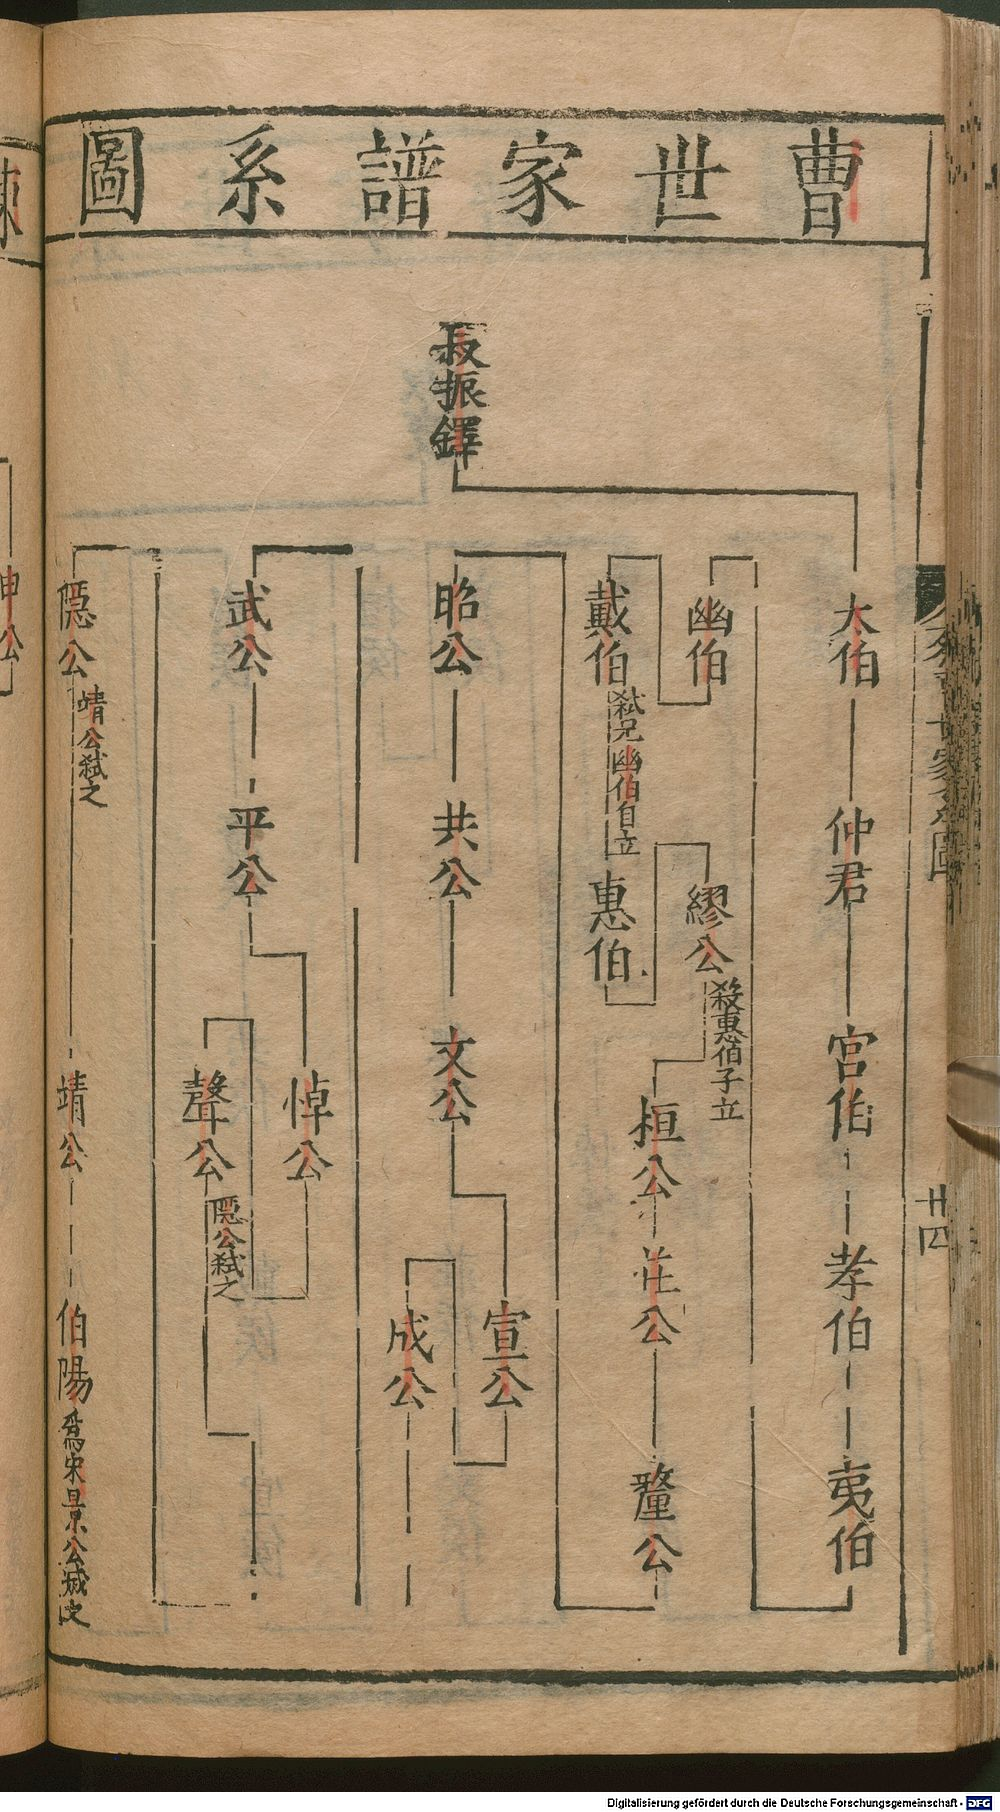 曹世家譜系圖
叔振鐸
太伯
仲君
宮伯
孝伯
夷伯
幽伯
戴伯
弒兄幽伯自立
惠伯
繆公
殺惠伯子立
桓公
莊公
釐公
昭公
共公
文公
宣公
成公
武公
平公
悼公
聲公
隱公弒之
隱公
靖公弒之
靖公
伯陽
爲宋景公滅之
廿四
申公
Digitalisierung gefördert durch die Deutsche Forschungsgemeinschaft - DFG